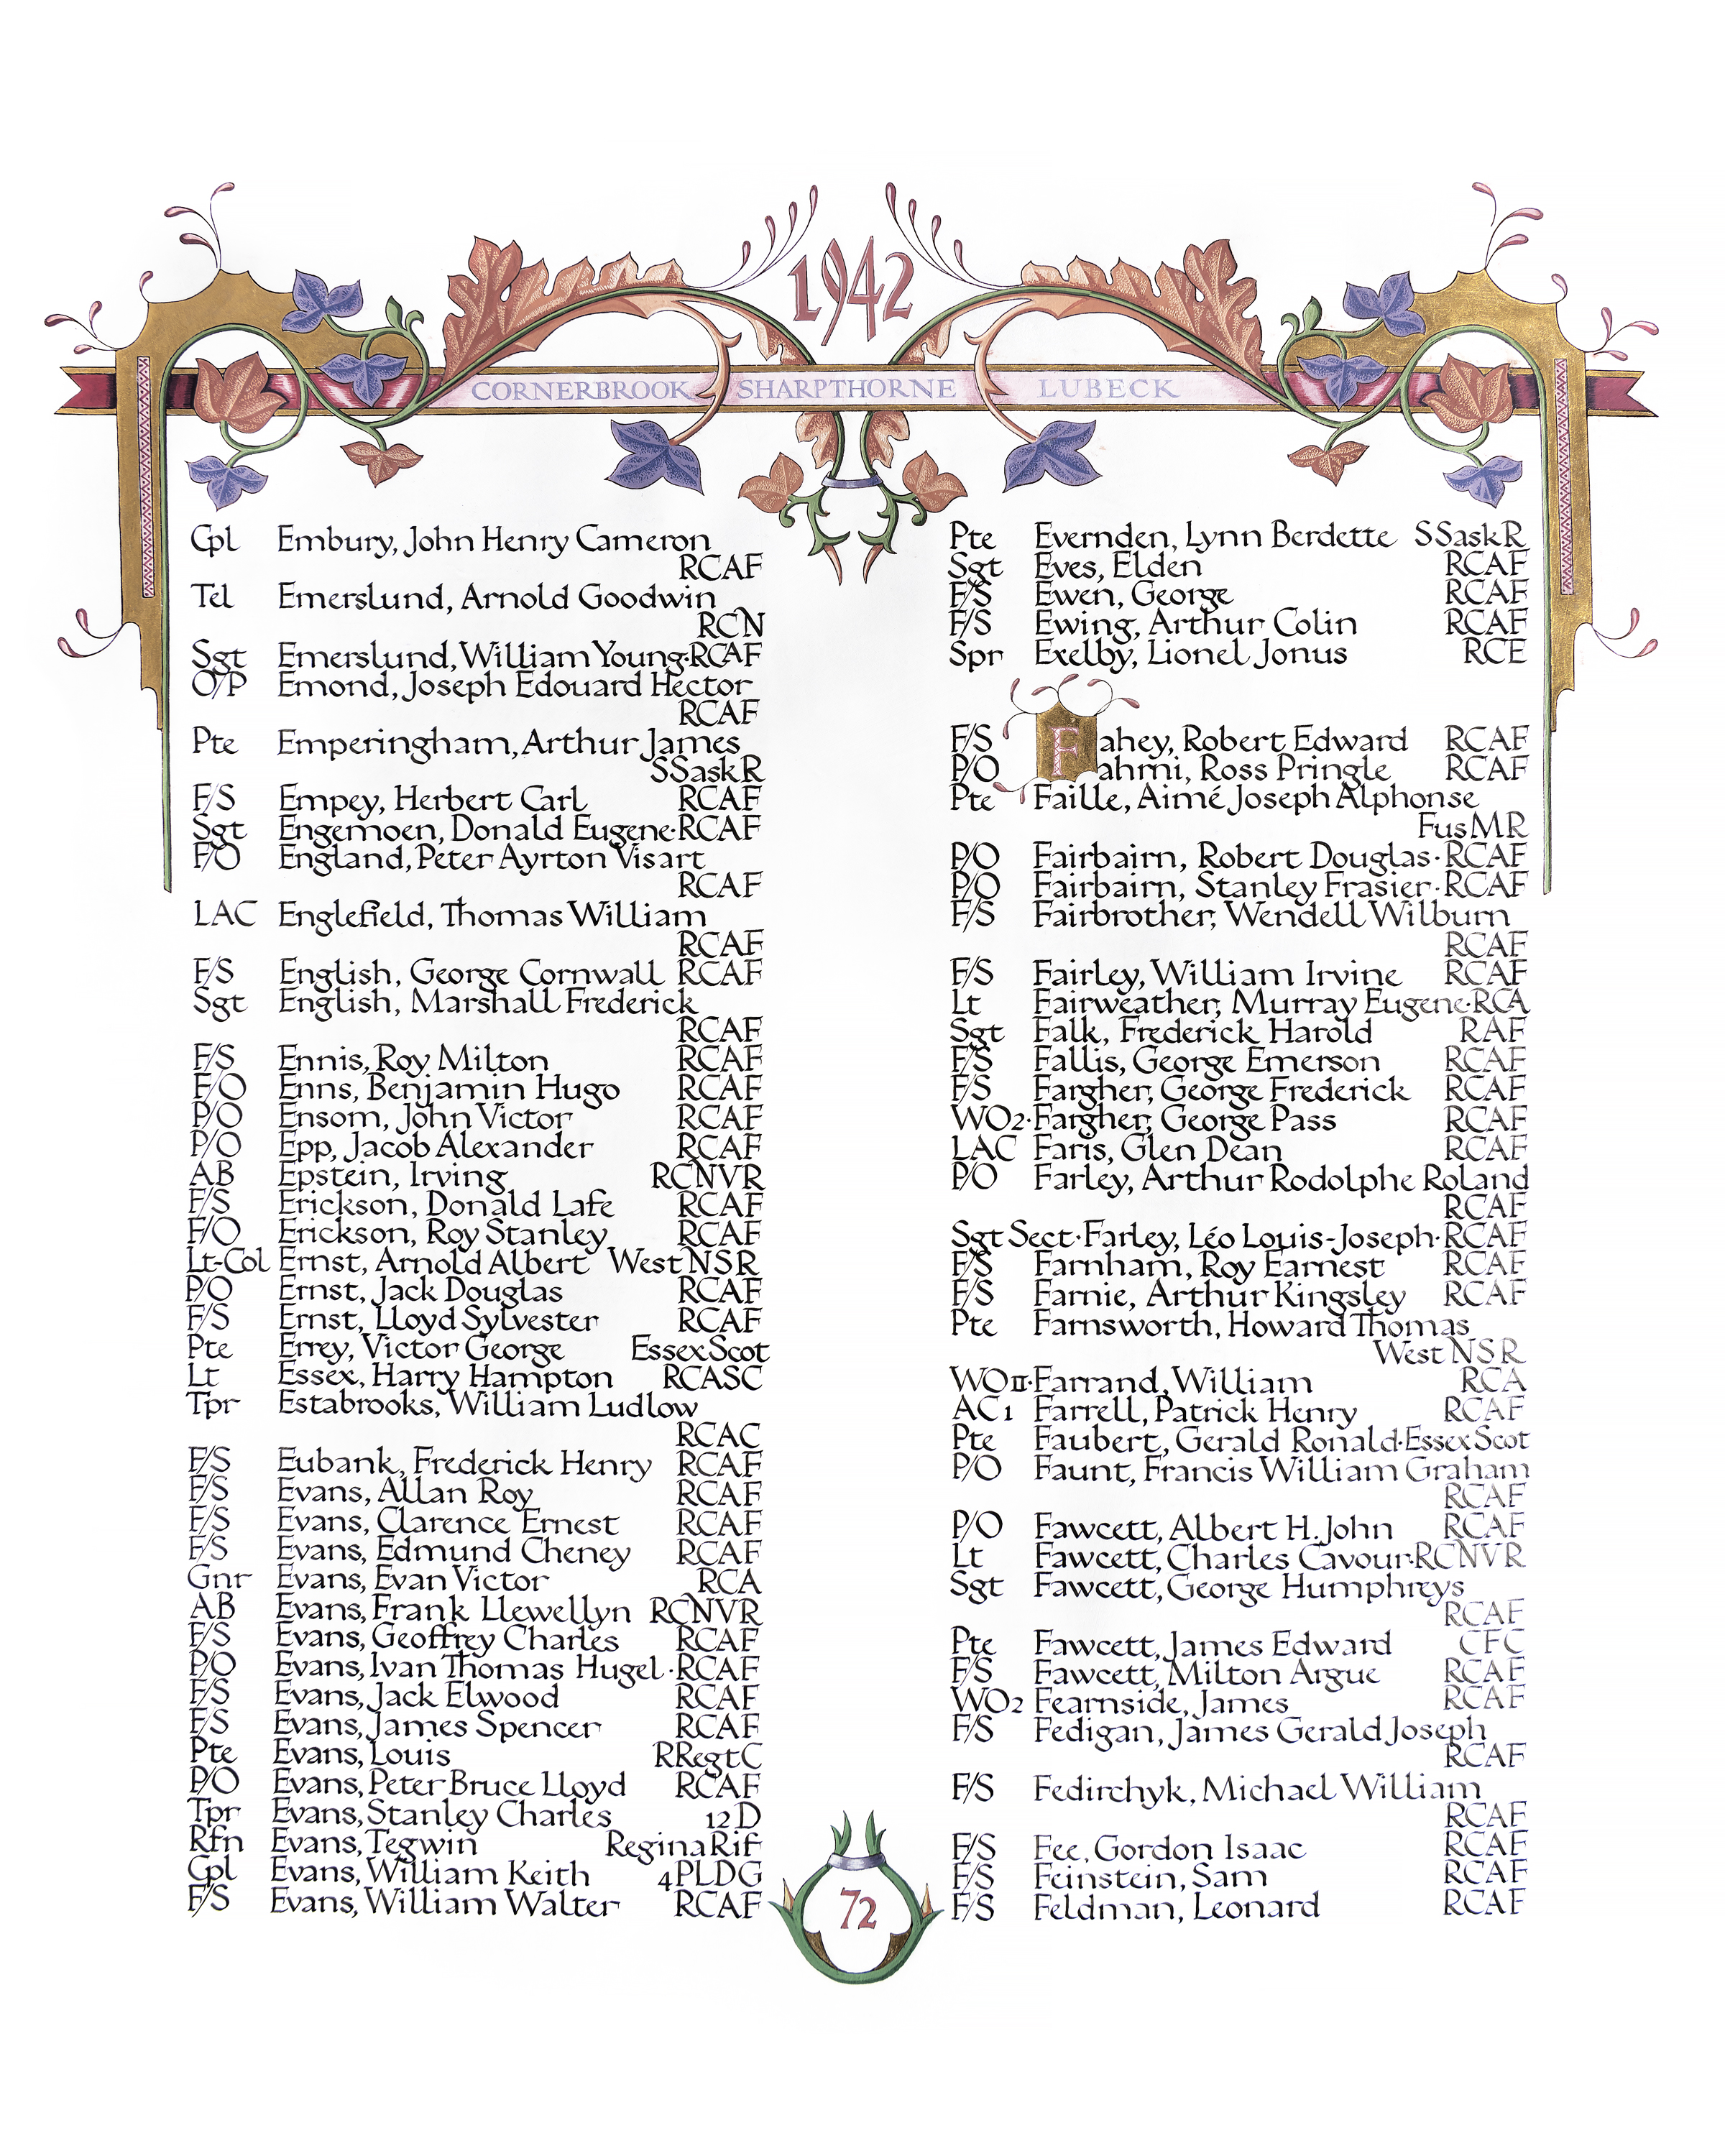 1942
CORNERBROOK SHARPTHORNE LUBECK
Cpl Embury, John Henry Cameron
RCAF
Tel Emerslund, Arnold Goodwin
RCN
Sgt Emerslund, William Young·RCAF
O/P Emond, Joseph Edouard Hector
RCAF
Pte Emperingham, Arthur James
SSaskR
F/S Empey, Herbert Carl RCAF
Sgt Engemoen, Donald Eugene·RCAF
F/O England, Peter Ayrton Visart
RCAF
LAC Englefield, Thomas William
RCAF
F/S English, George Cornwall RCAF
Sgt English, Marshall Frederick
RCAF
F/S Ennis, Roy Milton RCAF
F/O Enns, Benjamin Hugo RCAF
P/O Ensom, John Victor RCAF
P/O Epp, Jacob Alexander RCAF
AB Epstein, Irving RCNVR
F/S Erickson, Donald Lafe RCAF
F/O Erickson, Roy Stanley RCAF
Lt-Col Ernst, Arnold Albert West NSR
P/O Ernst, Jack Douglas RCAF
F/S Ernst, Lloyd Sylvester RCAF
Pte Errey, Victor George Essex Scot
Lt Essex, Harry Hampton RCASC
Tpr Estabrooks, William Ludlow
RCAC
F/S Eubank, Frederick Henry RCAF
F/S Evans, Allan Roy RCAF
F/S Evans, Clarence Ernest RCAF
F/S Evans, Edmund Cheney RCAF
Gnr Evans, Evan Victor RCA
AB Evans, Frank Llewellyn RCNVR
F/S Evans, Geoffrey Charles RCAF
P/O Evans, Ivan Thomas Hugel·RCAF
F/S Evans, Jack Elwood RCAF
F/S Evans, James Spencer RCAF
Pte Evans, Louis RRegtC
P/O Evans, Peter Bruce Lloyd RCAF
Tpr Evans, Stanley Charles 12 D
Rfn Evans, Tegwin Regina Rif
Cpl Evans, William Keith 4PLDG
F/S Evans, William Walter RCAF
Pte Evernden, Lynn Berdette SSaskR
Sgt Eves, Elden RCAF
F/S Ewen, George RCAF
F/S Ewing, Arthur Colin RCAF
Spr Exelby, Lionel Jonus RCE
F/S Fahey, Robert Edward RCAF
P/O Fahmi, Ross Pringle RCAF
Pte Faille, Aimé Joseph Alphonse
Fus MR
P/O Fairbairn, Robert Douglas·RCAF
P/O Fairbairn, Stanley Frasier·RCAF
F/S Fairbrother, Wendell Wilburn
RCAF
F/S Fairley, William Irvine RCAF
Lt Fairweather, Murray Eugene·RCA
Sgt Falk, Frederick Harold RAF
F/S Fallis, George Emerson RCAF
F/S Fargher, George Frederick RCAF
WO2·Fargher, George Pass RCAF
LAC Faris, Glen Dean RCAF
P/O Farley, Arthur Rodolphe Roland
RCAF
Sgt Sect·Farley, Léo Louis-Joseph·RCAF
F/S Farnham, Roy Earnest RCAF
F/S Farnie, Arthur Kingsley RCAF
Pte Farnsworth, Howard Thomas
West NSR
WO II·Farrand, William RCA
AC1 Farrell, Patrick Henry RCAF
Pte Faubert, Gerald Ronald·Essex Scot
P/O Faunt, Francis William Graham
RCAF
P/O Fawcett, Albert H. John RCAF
Lt Fawcett, Charles Cavour·RCNVR
Sgt Fawcett, George Humphreys
RCAF
Pte Fawcett, James Edward CFC
F/S Fawcett, Milton Argue RCAF
WO2 Fearnside, James RCAF
F/S Fedigan, James Gerald Joseph
RCAF
F/S Fedirchyk, Michael William
RCAF
F/S Fee, Gordon Isaac RCAF
F/S Feinstein, Sam RCAF
F/S Feldman, Leonard RCAF
72